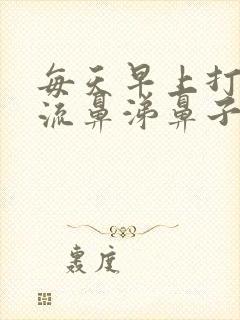 每天早上打
流鼻涕鼻子